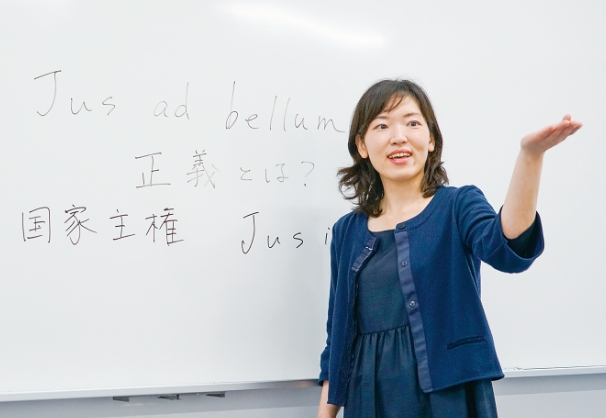 Jus ad bellum
正義とは?
国家主権 Jus i